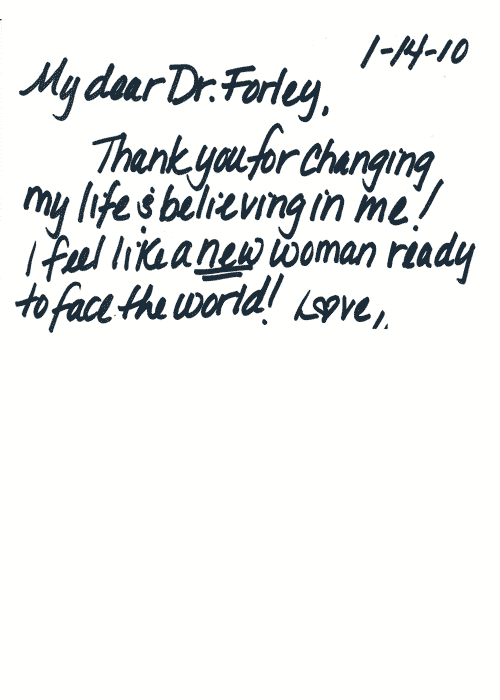 1-14-10
My dear Dr. Forley,
Thank you for changing
my life & believing in me!
I feel like a new woman ready
to face the world! Love,